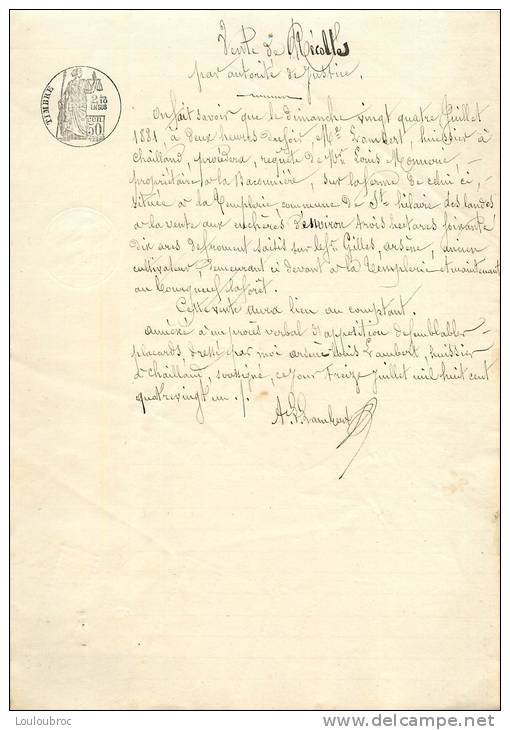 Vente de Récolte
par autorité de Justice.
TIMBRE
50
On fait savoir que le dimanche vingt quatre Juillet
1881, à deux heures du soir, Me Lambert, huissier à
Chailland, procédera, requête de Mr Louis
propriétaire à la Baconnière, sur la ferme de celui ci,
située à la Templerie commune de St hilaire des landes
à la vente aux enchères d'environ trois hectares soixante
dix ares de froment saisis sur le sr Gilles, arsène, ancien
cultivateur, demeurant ci devant à la Templerie et maintenant
au Bourgneuf la forêt.
Cette vente aura lieu au comptant.
annexé à un procès verbal d'apposition de semblables
placards, dressé par moi arsène Louis Lambert, huissier
à Chailland, soussigné, ce jour Treize juillet mil huit cent
quatre vingt un ./.
A. L. Lambert
Louloubroc
www.delcampe.net